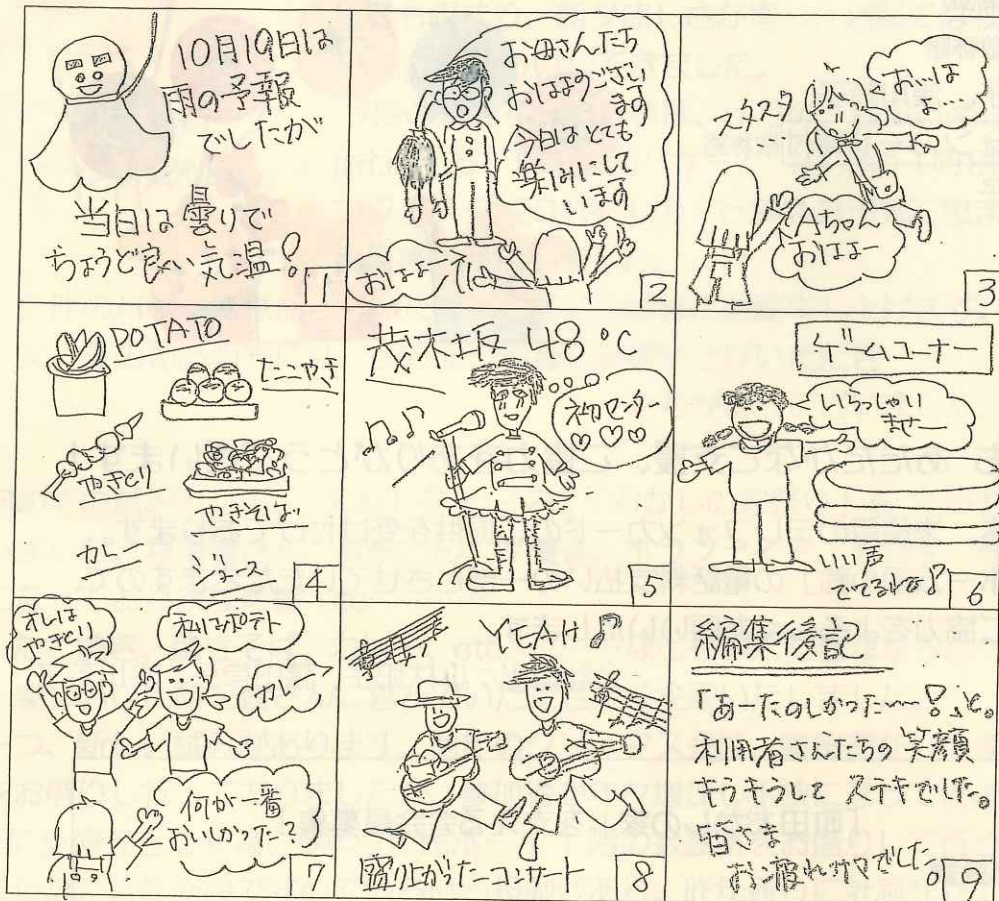 10月19日は
雨の予報
でしたが
当日は曇りで
ちょうど良い気温!
1
お母さんたち
おはようござい
ます
今日はとても
楽しみにして
います
おはよー
2
スタスタ
お…は
よ…
Aちゃん
おはよー
3
POTATO
たこやき
やきとり
やきそば
カレー
ジュース
4
茂木坂 48℃
初センター
♡♡♡
5
ゲームコーナー
いらっしゃい
ませー
いい声
でてるわぁ!
6
オレは
やきとり
私はポテト
カレー
何が一番
おいしかった?
7
YEAH♪
盛り上がったーコンサート
8
編集後記
「あーたのしかった〜〜!」と。
利用者さんたちの笑顔
キラキラして ステキでした。
皆さま
お疲れサマでした。
9